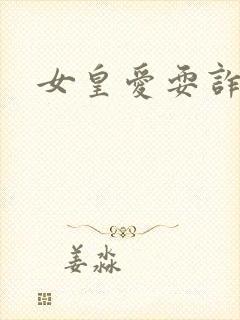 女皇愛耍詐
姜淼